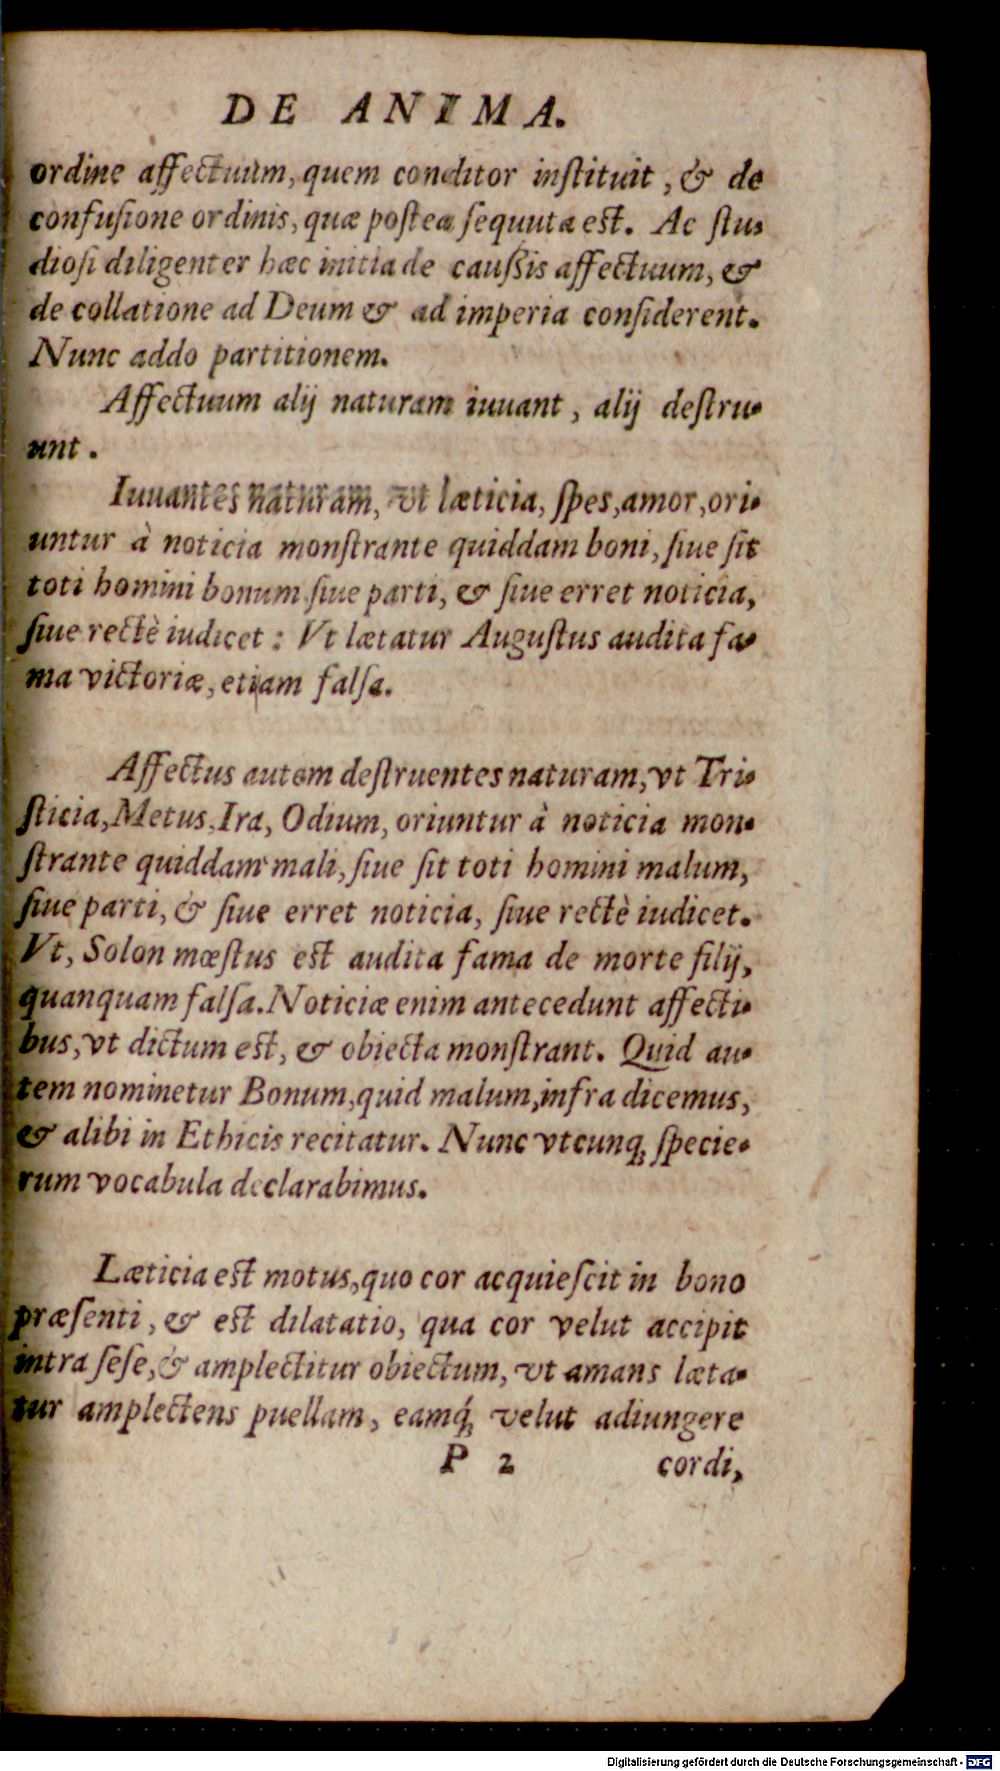 DE ANIMA.
ordine affectuùm, quem conditor inſtituit, & de
confuſione ordinis, quæ poſtea ſequuta eſt. Ac ſtu-
dioſi diligenter hæc initia de cauſſis affectuum, &
de collatione ad Deum & ad imperia conſiderent.
Nunc addo partitionem.
Affectuum alij naturam iuuant, alij deſtru-
unt.
Iuuantes naturam, vt læticia, ſpes, amor, ori-
untur à noticia monſtrante quiddam boni, ſiue ſit
toti homini bonum ſiue parti, & ſiue erret noticia,
ſiue rectè iudicet: Vt lætatur Auguſtus audita fa-
ma victoriæ, etiam falſa.
Affectus autem deſtruentes naturam, vt Tri-
ſticia, Metus, Ira, Odium, oriuntur à noticia mon-
ſtrante quiddam mali, ſiue ſit toti homini malum,
ſiue parti, & ſiue erret noticia, ſiue rectè iudicet.
Vt, Solon mœſtus eſt audita fama de morte filij,
quanquam falſa. Noticiæ enim antecedunt affecti-
bus, vt dictum eſt, & obiecta monſtrant. Quid au-
tem nominetur Bonum, quid malum, infra dicemus,
& alibi in Ethicis recitatur. Nunc vtcunq; ſpecie-
rum vocabula declarabimus.
Læticia eſt motus, quo cor acquieſcit in bono
præſenti, & eſt dilatatio, qua cor velut accipit
intra ſeſe, & amplectitur obiectum, vt amans læta-
tur amplectens puellam, eamq́; velut adiungere
P 2 cordi,
Digitalisierung gefördert durch die Deutsche Forschungsgemeinschaft - DFG